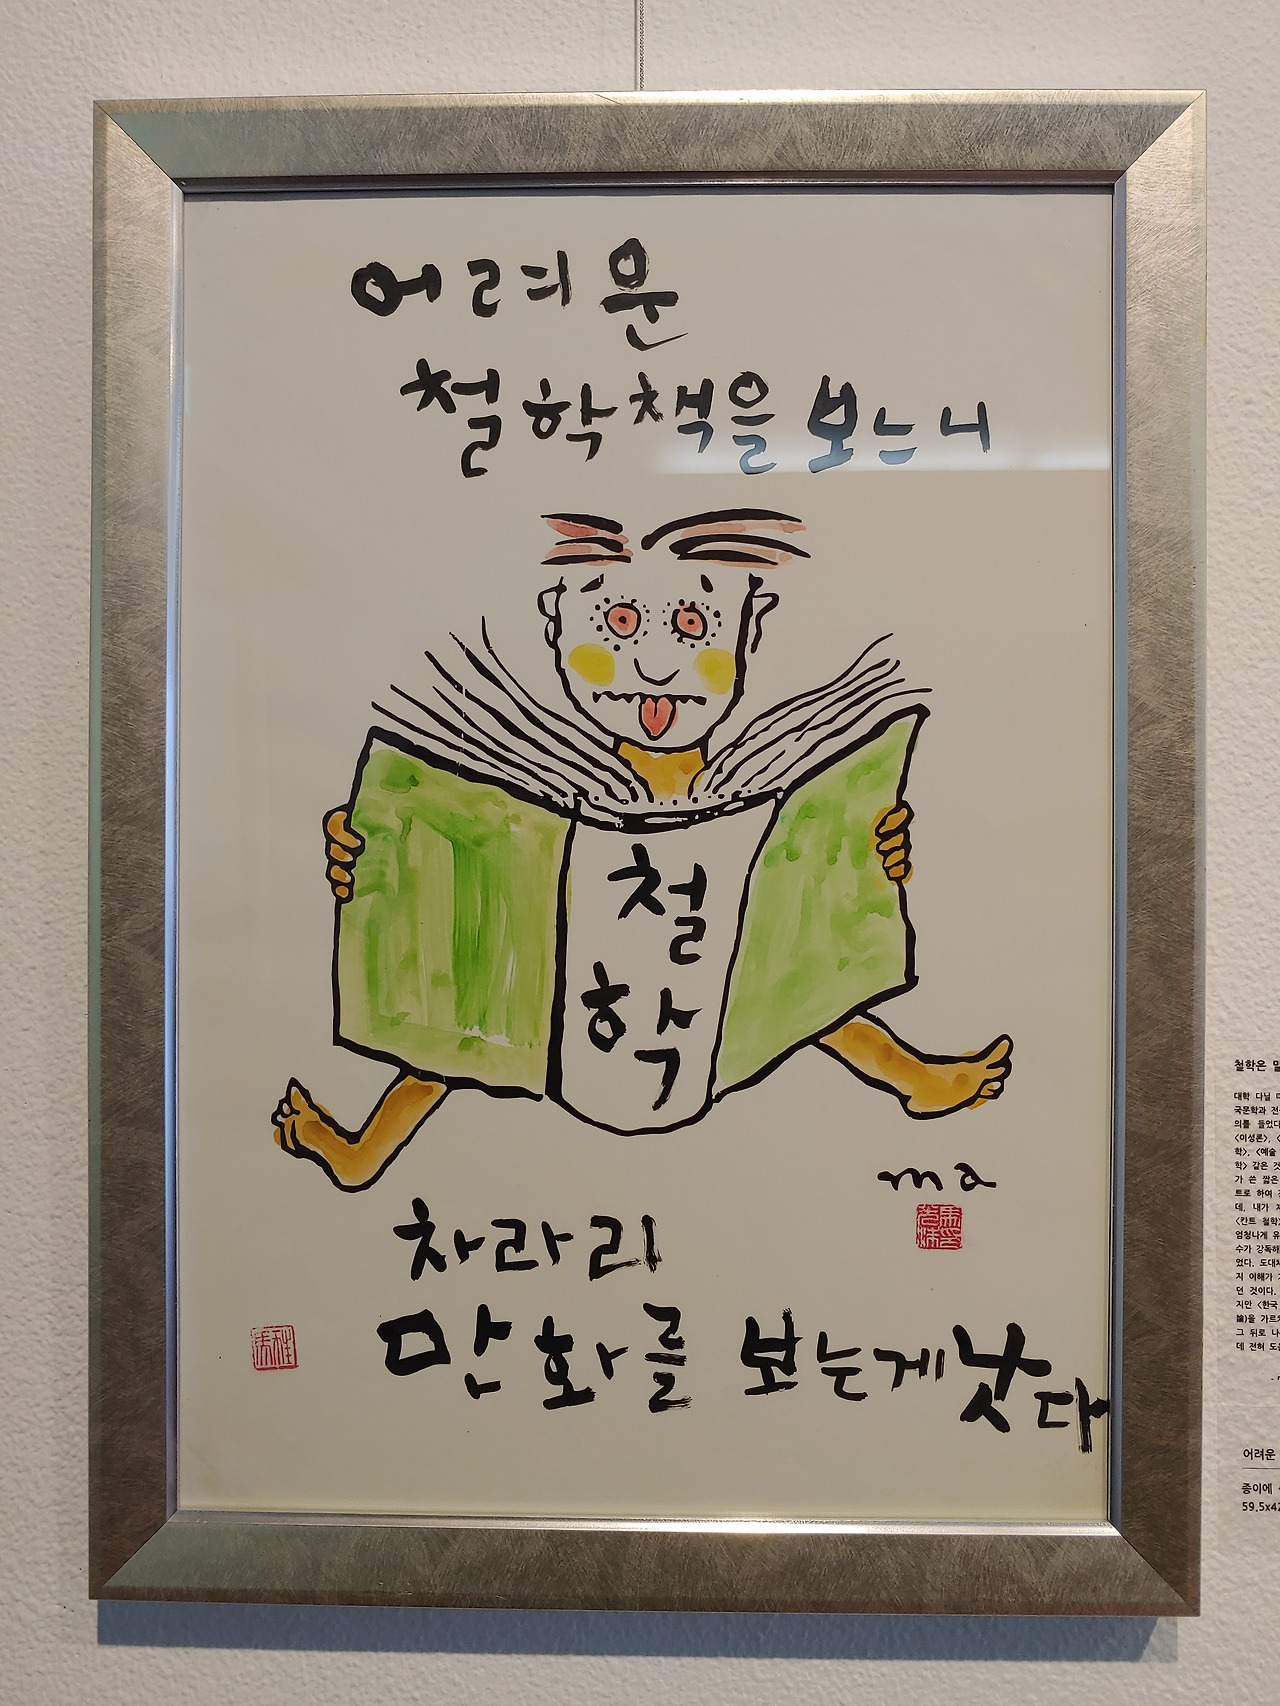 어려운
철학책을 보느니
철
학
ma
차라리
만화를 보는게 낫다
철학은
대학 다닐
국문학과
의를 들었다
<이성론>,
학>, <예술
학> 같은
가 쓴 짧은
트로 하여
데, 내가
<칸트 철학
엄청나게
수가 강독해
었다. 도대체
지 이해가
던 것이다.
지만 <한국
論)을
그 뒤로
데 전혀
어려운
종이에
59.5x42